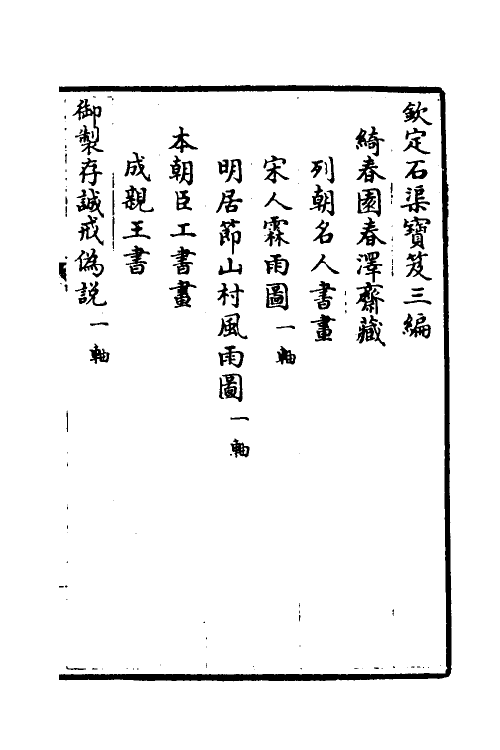 欽定石渠寶笈三編
綺春園春澤齋藏
列朝名人書畫
宋人霖雨圖一軸
明居節山村風雨圖一軸
本朝臣工書畫
成親王書
御製存誠戒偽説一軸